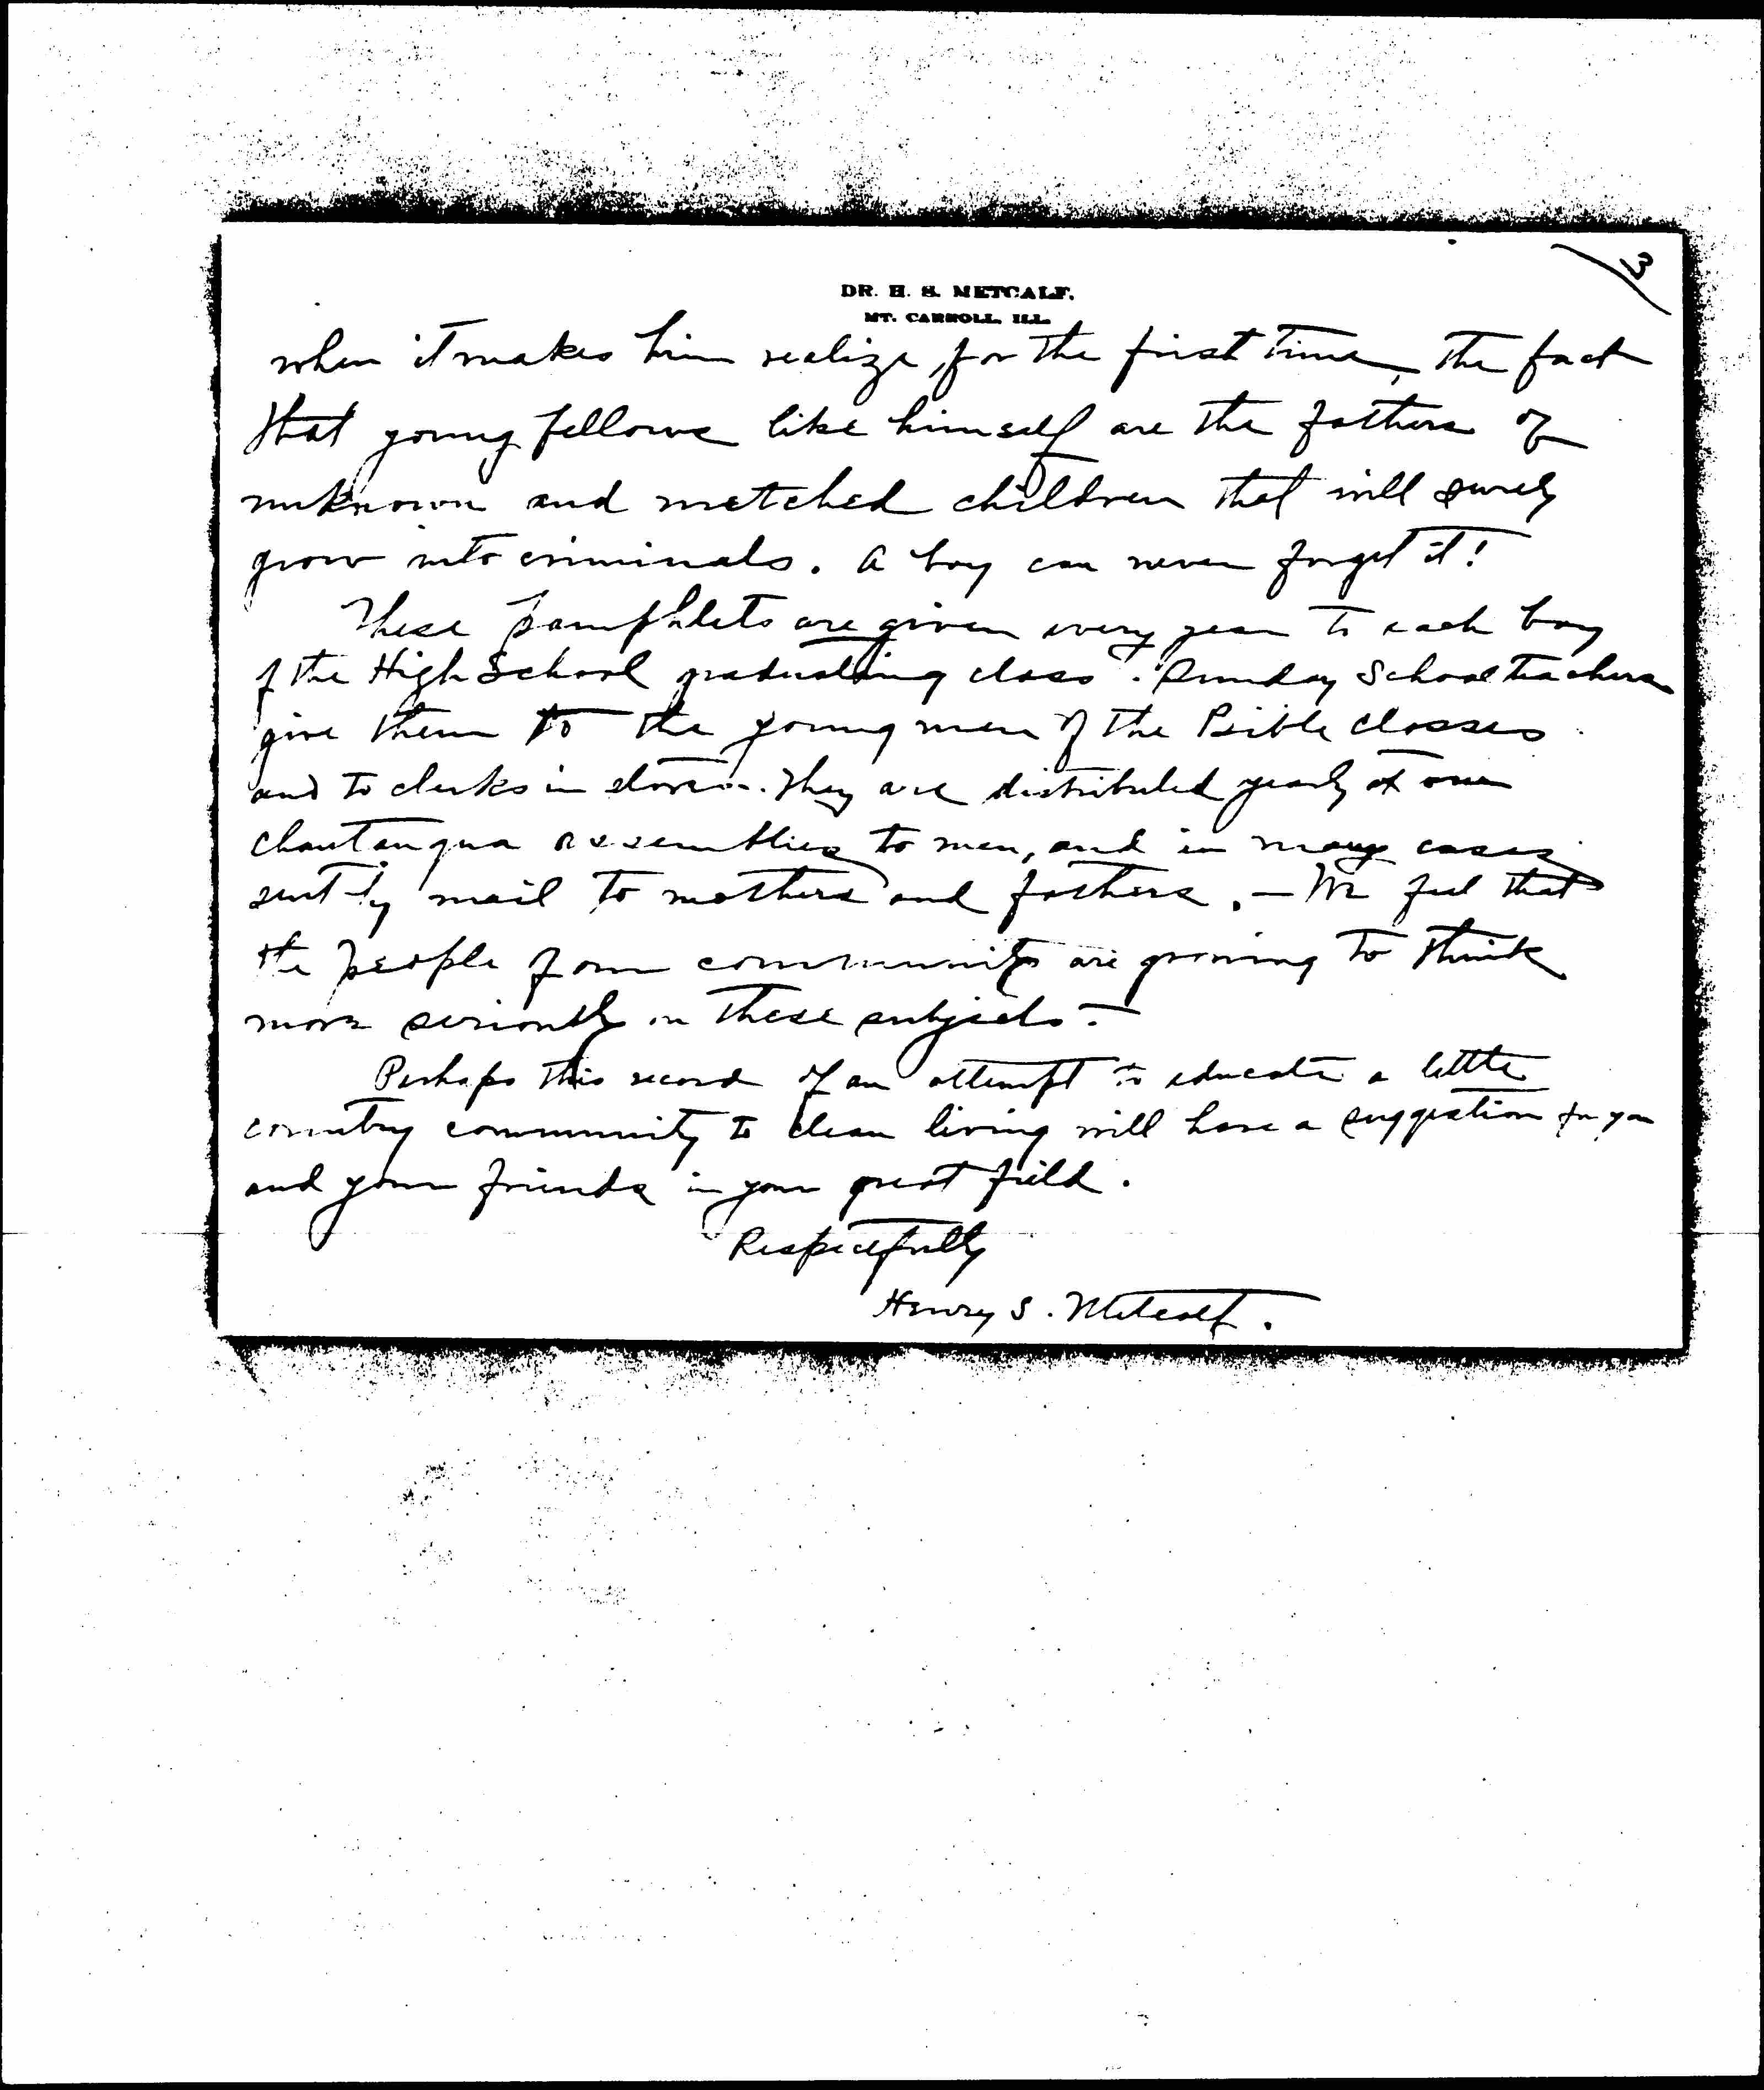 3
DR. H. S. METCALF,
MT. CARROLL, ILL.
when it makes him realize, for the first time, the fact
that young fellows like himself are the fathers of
unknown and wretched children that will surely
grow into criminals. A boy can never forget it!
These pamphlets are given every year to each boy
of the High School graduating class. Sunday School teachers
give them to the young men of the Bible classes
and to clerks in stores. They are distributed yearly at our
chautauqua assemblies to men, and in many cases
sent by mail to mothers and fathers. — We feel that
the people of our community are growing to think
more seriously on these subjects.
Perhaps this record of an attempt to educate a little
country community to clean living will have a suggestion for you
and your friends in your great field.
Respectfully
Henry S. Metcalf.